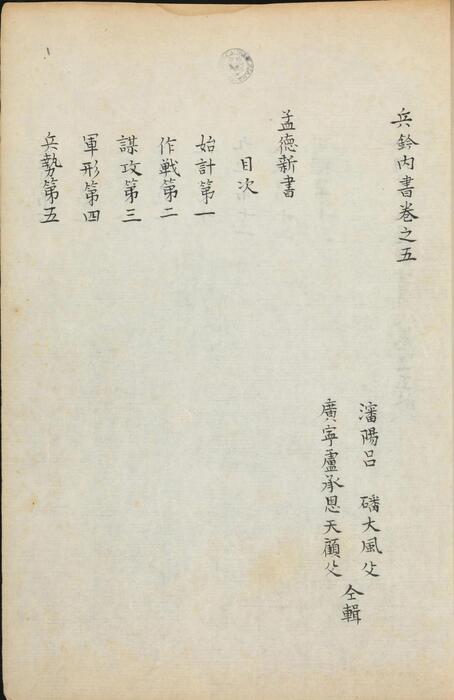 兵鈐内書卷之五
瀋陽呂 磻大風父
廣寧盧承恩天顧父
仝輯
孟德新書
目次
始計第一
作戰第二
謀攻第三
軍形第四
兵勢第五